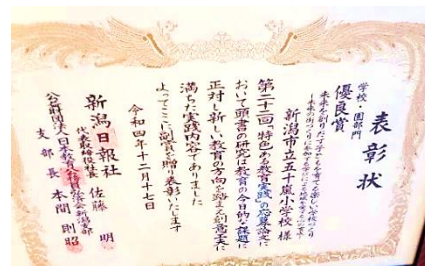 表彰状
学校・園部門
優良賞
新潟市立五十嵐小学校 様
第二十二回「特色ある教育実践」の応募論文に
おいて頭書の研究は教育の今日的な課題に
正対し新しい教育の方向を踏まえ創意工夫に
満ちた実践内容でありました
よってここに副賞を贈り表彰いたします
令和四年十二月十七日
新潟日報社
代表取締役社長 佐藤 明
公益財団法人日本教育公務員弘済会新潟支部
支部長 本間 則昭